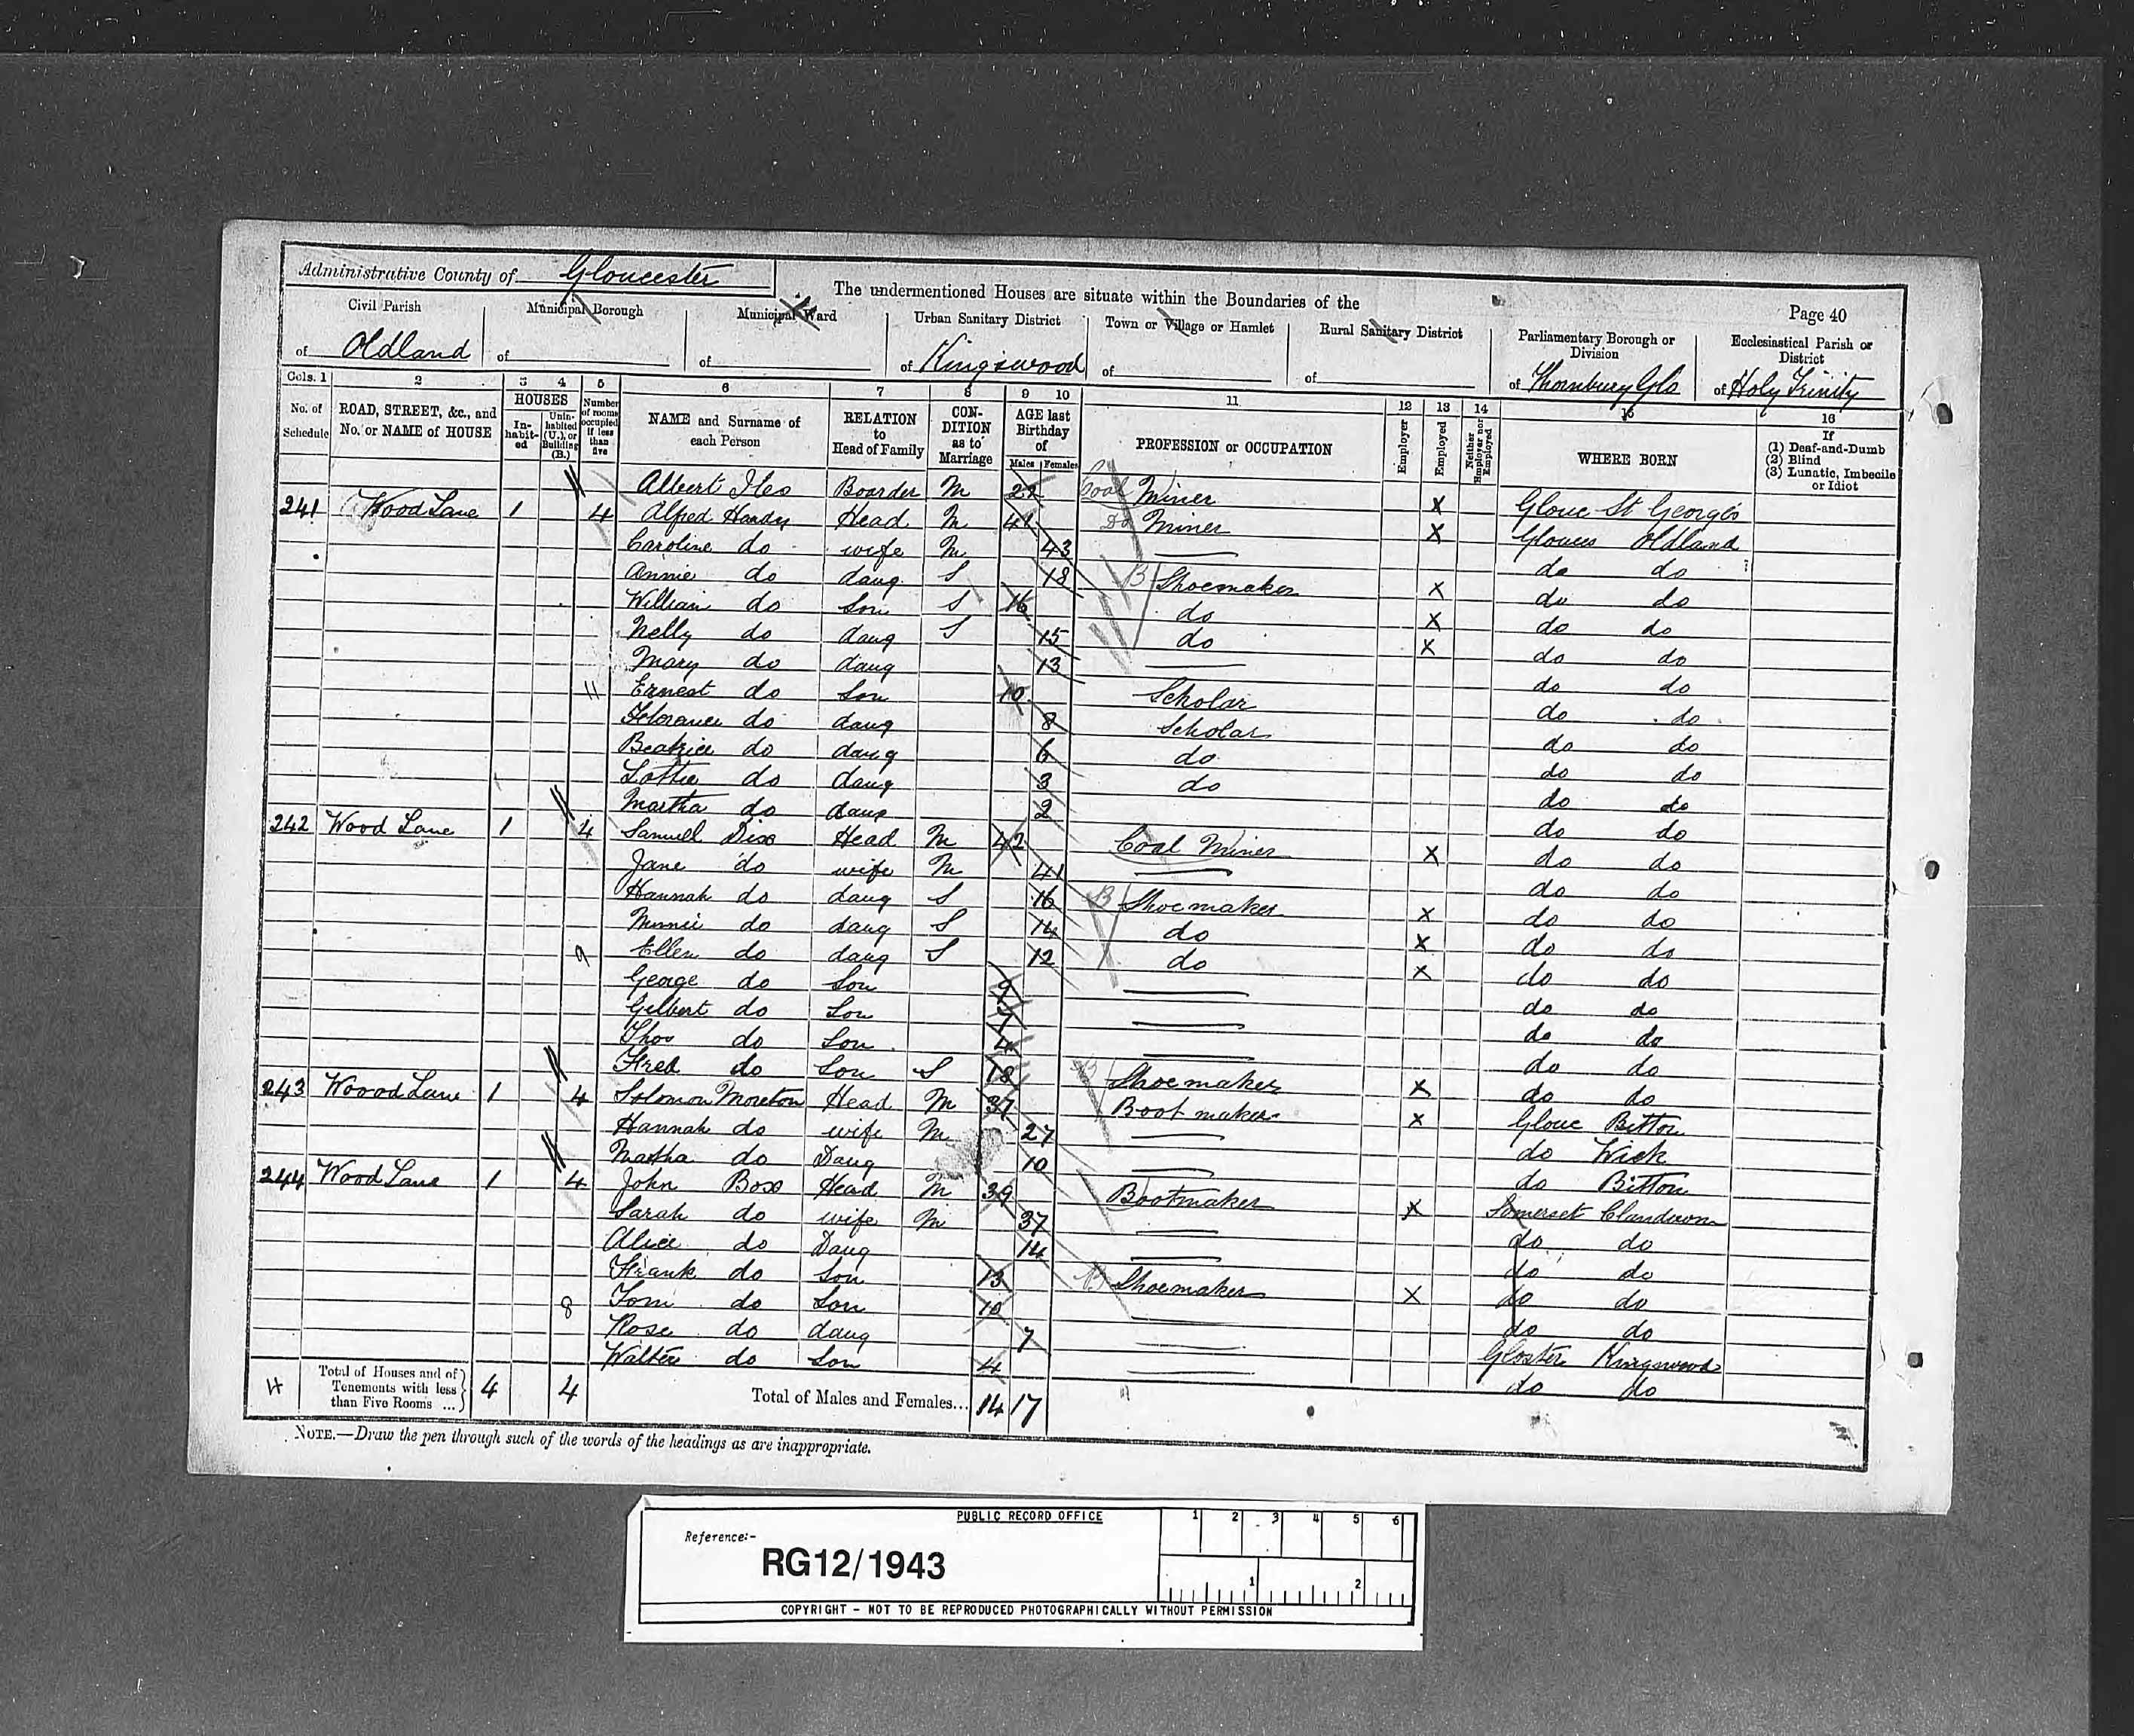 Administrative County of Gloucester
The undermentioned Houses are situate within the Boundaries of the
Page 40
Civil Parish of Oldland
Municipal Borough of
Municipal Ward of
Urban Sanitary District of Kingswood
Town or Village or Hamlet of
Rural Sanitary District of
Parliamentary Borough or Division of Thornbury Glo
Ecclesiastical Parish or District of Holy Trinity
Cols. 1 2 3 4 5 6 7 8 9 10 11 12 13 14 15 16
No. of Schedule
ROAD, STREET, &c., and No. or NAME of HOUSE
HOUSES
In-habit-ed
Unin-habited (U.), or Building (B.)
Number of rooms occupied if less than five
NAME and Surname of each Person
RELATION to Head of Family
CON-DITION as to Marriage
AGE last Birthday of
Males Females
PROFESSION or OCCUPATION
Employer
Employed
Neither Employer nor Employed
WHERE BORN
If (1) Deaf-and-Dumb (2) Blind (3) Lunatic, Imbecile or Idiot
Albert Iles Boarder M 22 Coal Miner X Glouc St Georges
241 Wood Lane 1 4 Alfred Handy Head M 41 Do Miner X Glouces Oldland
Caroline do wife M 43 do do
Annie do daug S 18 B Shoemaker X do do
William do Son S 16 do X do do
Nelly do daug S 15 do X do do
Mary do daug 13 do do
11 Ernest do Son 10 Scholar do do
Florance do daug 8 Scholar do do
Beatrice do daug 6 do do do
Lottie do daug 3 do do do
Martha do daug 2 do do
242 Wood Lane 1 4 Samuel Dix Head M 42 Coal Miner X do do
Jane do wife M 41 do do
Hannah do daug S 16 B Shoemaker X do do
Minnie do daug S 14 do X do do
9 Ellen do daug S 12 do X do do
George do Son 9 do do
Gilbert do Son 7 do do
Thos do Son 4 do do
Fred do Son S 18 Shoemaker X do do
243 Woood Lane 1 4 Solomon Moreton Head M 37 Boot maker X Glouc Bitton
Hannah do wife M 27 do Wick
Martha do Daug 10 do Bitton
244 Wood Lane 1 4 John Box Head M 39 Bootmaker X Somerset Clandown
Sarah do wife M 37 do do
Alice do Daug 14 do do
Frank do Son 13 B Shoemaker X do do
8 Tom do Son 10 do do
Rose do daug 7 Gloster Kingswood
Walter do Son 4 do do
4 Total of Houses and of Tenements with less than Five Rooms ... 4 4 Total of Males and Females... 14 17
NOTE.—Draw the pen through such of the words of the headings as are inappropriate.
PUBLIC RECORD OFFICE 1 2 3 4 5 6
Reference:-
RG12/1943
1 2
COPYRIGHT - NOT TO BE REPRODUCED PHOTOGRAPHICALLY WITHOUT PERMISSION